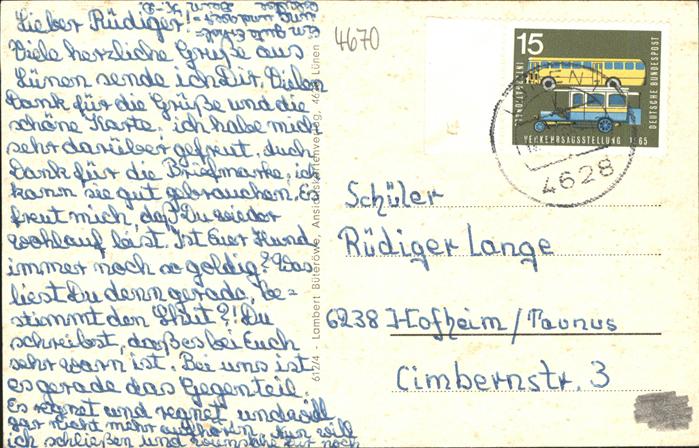 Lieber Rüdiger!
Viele herzliche Grüße aus
Lünen sende ich Dir. Vielen
Dank für die Grüße und die
schöne Karte, ich habe mich
sehr darüber gefreut. Auch
Dank für die Briefmarke, ich
kann sie gut gebrauchen. Es
freut mich, daß Du wieder
wohlauf bist. Ist Euer Hund
immer noch so goldig? Was
liest Du denn gerade, be=
stimmt den Shut?! Du
schreibst, daß es bei Euch
sehr warm ist. Bei uns ist
es gerade das Gegenteil.
Es regnet und regnet und will
gar nicht mehr aufhören. Nun will
ich schließen und wünsche Dir noch
612/4 - Lambert Büteröwe, Ansichtskartenverlag, Lünen
4670
15
DEUTSCHE BUNDESPOST
VERKEHRSAUSSTELLUNG 1965
4628
Schüler
Rüdiger Lange
6238 Hofheim/Taunus
Cimbernstr. 3